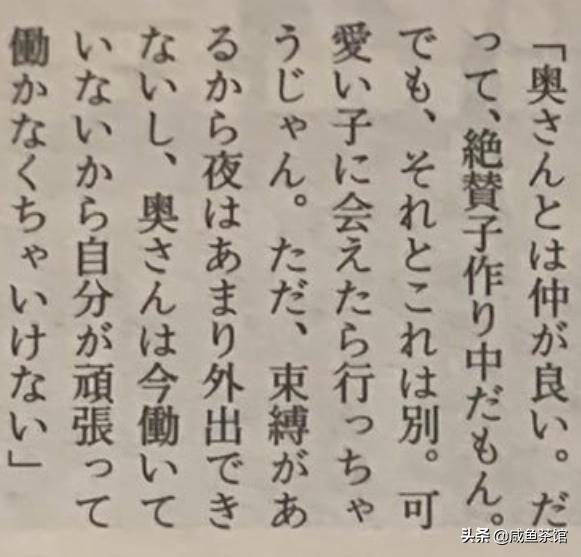 「奥さんとは仲が良い。だ
って、絶賛子作り中だもん。
でも、それとこれは別。可
愛い子に会えたら行っちゃ
うじゃん。ただ、束縛があ
るから夜はあまり外出でき
ないし、奥さんは今働いて
いないから自分が頑張って
働かなくちゃいけない」
头条 @咸鱼茶馆